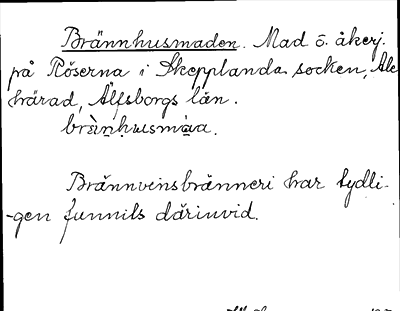 Brännhusmaden. Mad ö. åkerj.
på Röserna i Skepplanda socken, Ale
härad, Älfsborgs län.
brä̀n̥hu̇smȧa.
Brännvinsbränneri har tydli-
-gen funnits därinvid.